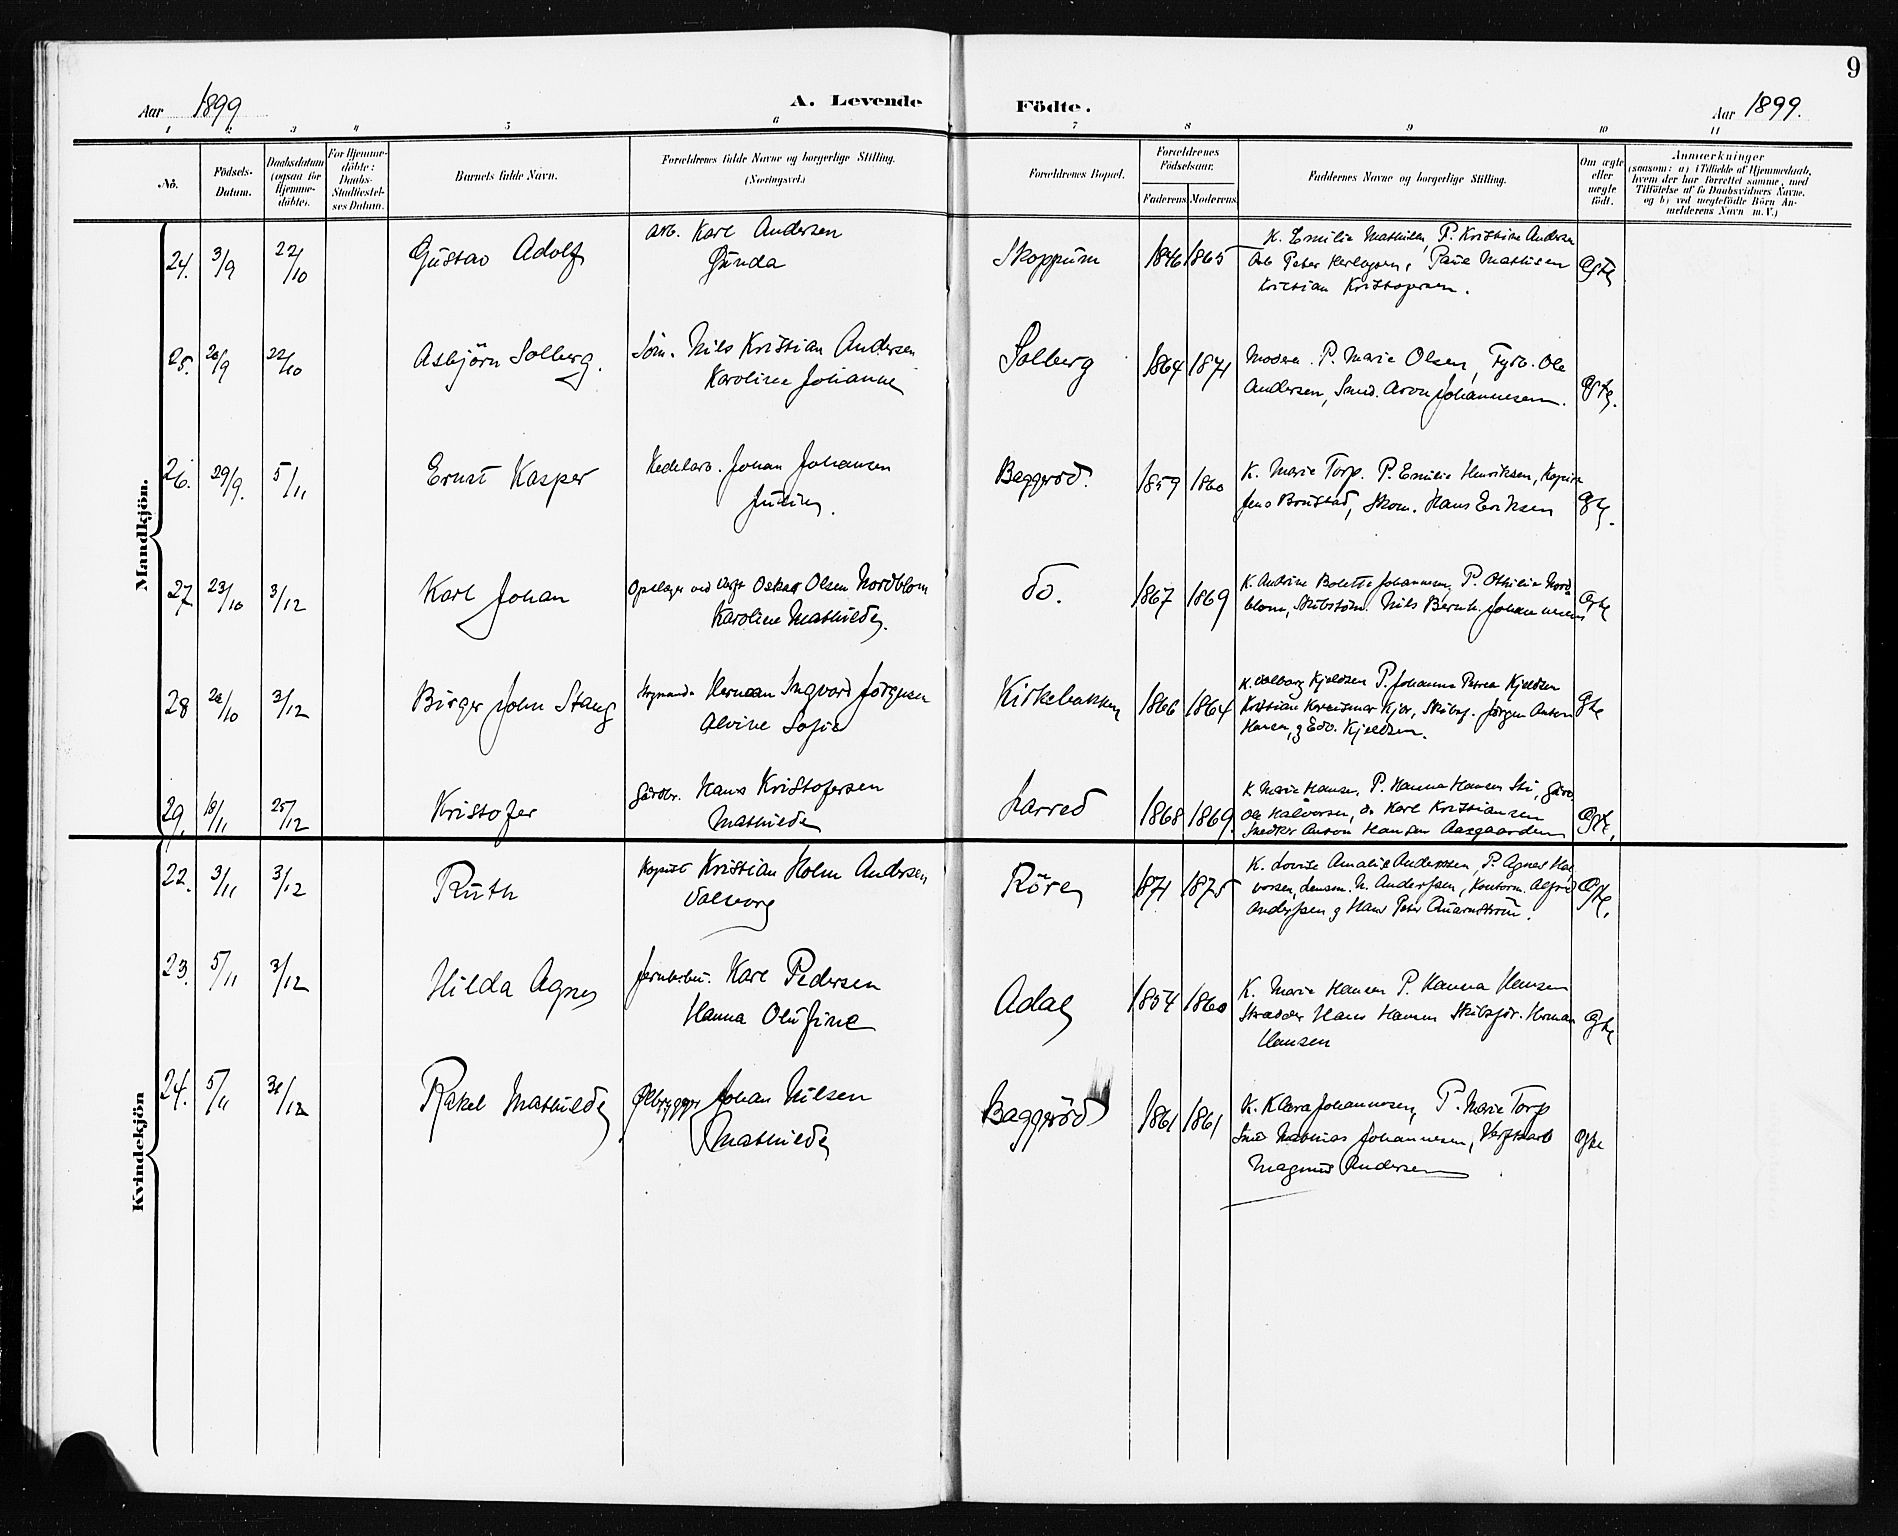 9
Aar 1899
A. Levende Födte.
Aar 1899.
1 2 3 4 5 6 7 8 9 10 11
No.
Födsels-Datum.
Daabsdatum (ogsaa for Hjemmedöbte).
For Hjemmedöbte: Daabs-Stadfæstelses Datum.
Barnets fulde Navn.
Forældrenes fulde Navne og borgerlige Stilling. (Næringsvei.)
Forældrenes Bopæl.
Forældrenes Födselsaar.
Faderens Moderens
Faddernes Navne og borgerlige Stilling.
Om ægte eller uægte födt.
Anmærkninger
(saasom: a) i Tilfælde af Hjemmedaab, hvem der har forrettet samme, med Tilföielse af to Daabsvidners Navne. og b) ved uægtefödte Börn Anmelderens Navn m. V.)
Mandkjön.
24. 3/9 22/10 Gustav Adolf
arb. Karl Andersen
Gunda
Skoppum 1846 1865
K. Emilie Mathilde, P. Kristine Andersen
Arb Peter Paul Mathisen
Kristian Kristofersen.
Ægte
25. 20/9 22/10 Asbjörn Solberg.
Söm. Nils Kristian Andersen
Karoline Johanne
Solberg 1864 1871
Modern. P. Marie Olsen, Fyrb. Ole
Andersen, Smed. Aron Johannesen.
Ægte.
26. 29/9. 5/11 Ernst Kasper
Kedelarb. Johan Johansen
Juline.
Baggeröd. 1859 1860
K. Marie Torp. P. Emilie Henriksen, Kopist
Jens Brustad, Skom. Hans Eriksen
Ægte.
27. 23/10 3/12 Karl Johan
Opslager ved Verft Oskar Olsen Nordblom
Karoline Mathilde.
do. 1867 1869
K. Andrine Bolette Johannesen, P. Othilie Nord
blom, Skibstöm. Nils Bernh. Johannesen
Ægte
28 20/10 3/12 Birger John Stang
Styrmand Herman Ingvard Jörgensen
Alvine Sofie
Kirkebakken 1866 1864
K. Valborg Kjeldsen P. Johanne Petrea Kjeldsen
Kristian Kjær, Skibsf. Jörgen Anton
Hansen, g Edv. Kjeldsen.
Ægte
29. 18/11 25/12 Kristofer
Gårdbr. Hans Kristofersen
Mathilde
Larred 1868 1869.
K Marie Hansen, P. Hanna Hansen Sti, Gårdb.
Ole Halvorsen, do Karl Kristiansen
Snedker Anton Hansen Aasgaarden
Ægte.
Kvindekjön
22. 3/11 3/12 Ruth
Kopist Kristian Holm Andersen
Valborg
Röre 1871 1875
K. Lovise Amalie Andersen, P. Agnes Hal
vorsen, N. Anderssen, Kontorm. Alfred
Anderssen g Hans Peter Quarnström.
Ægte.
23. 5/11 3/12 Hilda Agnes
Jernbarb. Karl Pedersen
Hanna Olufine
Adal 1854 1860
K. Marie Hansen P. Hanna Hansen
Skrædder Hans Hansen Skibsför. Herman
Hansen
Ægte
24. 5/11 31/12 Rakel Mathilde
Ølbrygger Johan Nilsen
Mathilde
Baggeröd 1861 1861
K. Klara Johannesen, P. Marie Torp
Smed Mathias Johannesen, Verftsarb
Magnus Andersen
Ægte